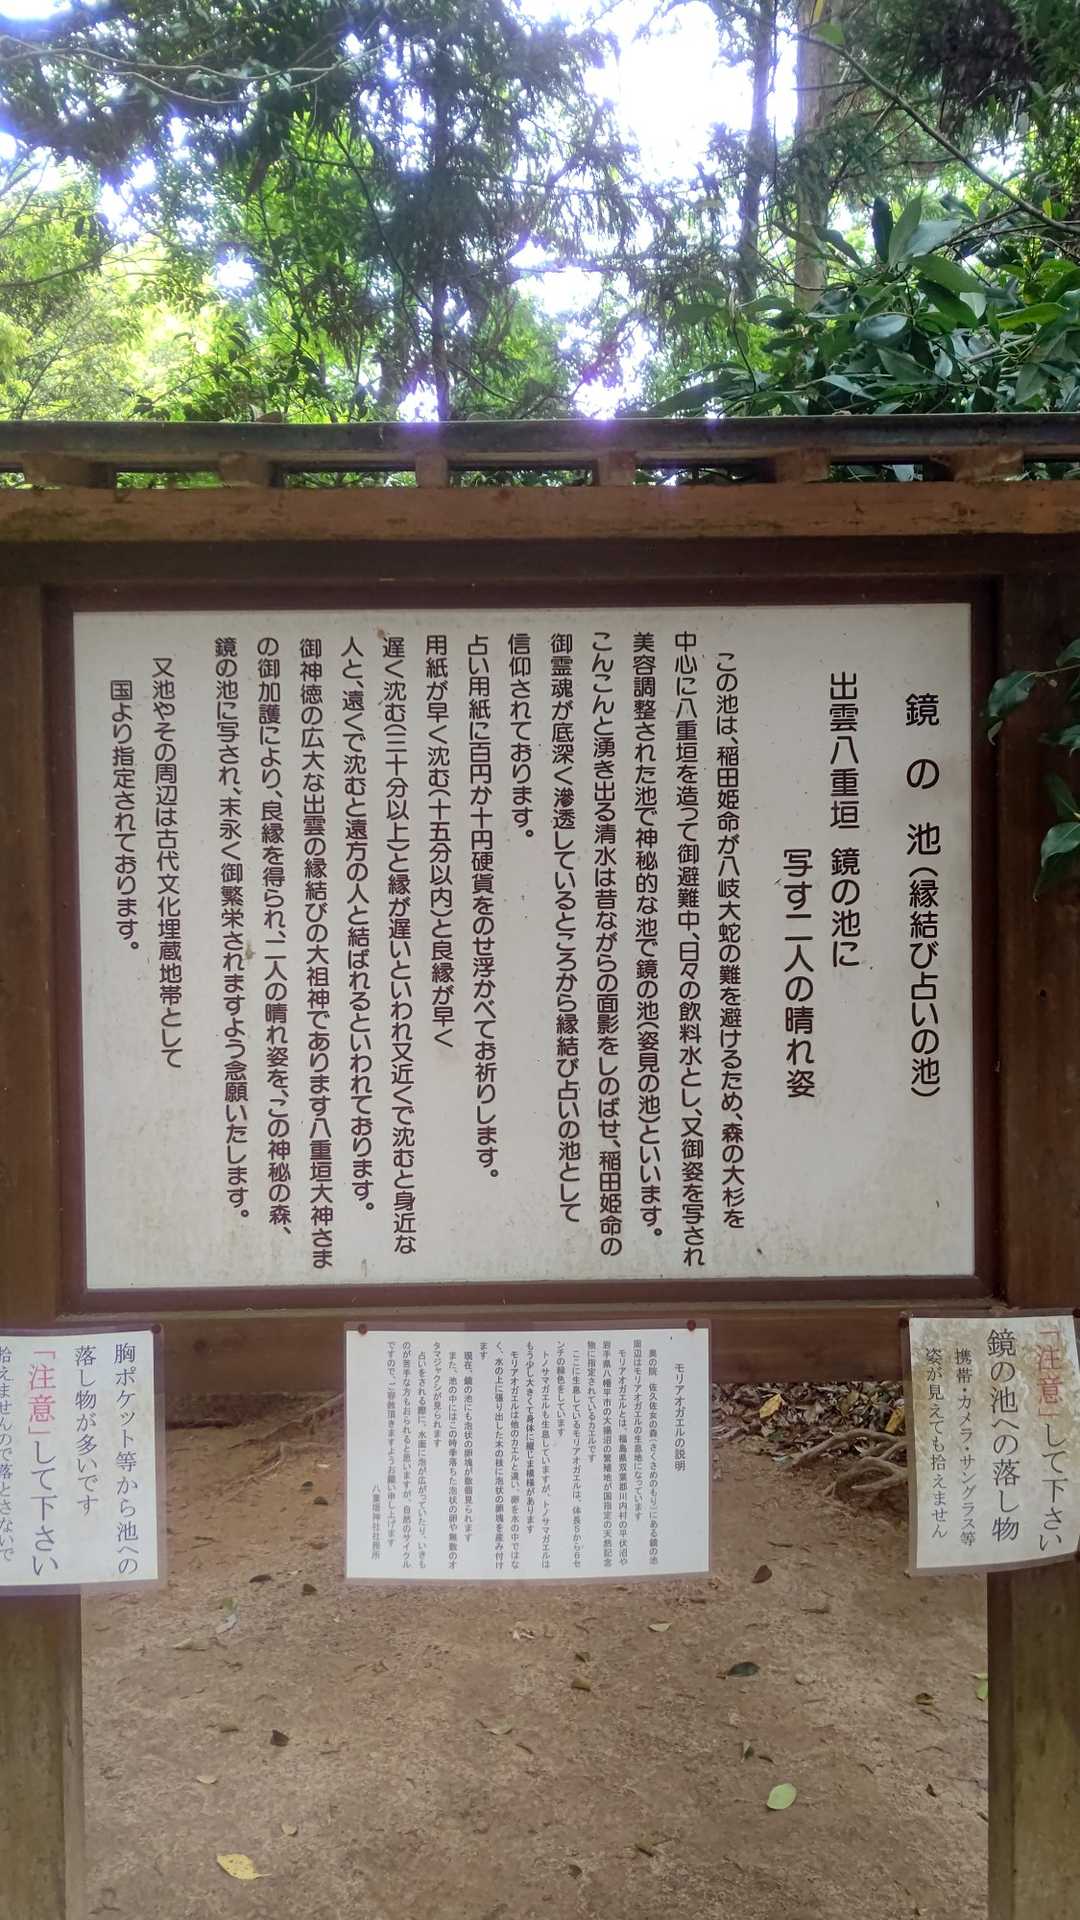 鏡の池(縁結び占いの池)
出雲八重垣 鏡の池に
写す二人の晴れ姿
この池は、稲田姫命が八岐大蛇の難を避けるため、森の大杉を
中心に八重垣を造って御避難中、日々の飲料水とし、又御姿を写され
美容調整された池で神秘的な池で鏡の池(姿見の池)といいます。
こんこんと湧き出る清水は昔ながらの面影をしのばせ、稲田姫命の
御霊魂が底深く滲透しているところから縁結び占いの池として
信仰されております。
占い用紙に百円か十円硬貨をのせ浮かべてお祈りします。
用紙が早く沈む(十五分以内)と良縁が早く
遅く沈む(三十分以上)と縁が遅いといわれ又近くで沈むと身近な
人と、遠くで沈むと遠方の人と結ばれるといわれております。
御神徳の広大な出雲の縁結びの大祖神であります八重垣大神さま
の御加護により、良縁を得られ、二人の晴れ姿を、この神秘の森、
鏡の池に写され、末永く御繁栄されますよう念願いたします。
又池やその周辺は古代文化埋蔵地帯として
国より指定されております。
「注意」して下さい
鏡の池への落し物
携帯・カメラ・サングラス等
姿が見えても拾えません
モリアオガエルの説明
奥の院 佐久佐女の森(さくさめのもり)にある鏡の池
周辺はモリアオガエルの生息地になっています
モリアオガエルとは、福島県双葉郡川内村の平伏沼や
岩手県八幡平市の大揚沼の繁殖地が国指定の天然記念
物に指定されているカエルです
ここに生息しているモリアオガエルは、体長5から6セ
ンチの緑色をしています
トノサマガエルも生息していますが、トノサマガエルは
もう少し大きくて身体に縦じま模様があります
モリアオガエルは他のカエルと違い、卵を水の中ではな
く、水の上に張り出した木の枝に泡状の卵塊を産み付け
ます
現在、鏡の池にも泡状の卵塊が数個見られます
また、池の中にはこの時季落ちた泡状の卵や無数のオ
タマジャクシが見られます
占いをされる際に、水面に泡が広がっていたり、いきも
のが苦手な方もおられると思いますが、自然のサイクル
ですので、ご容赦頂きますようお願い申し上げます
八重垣神社社務所
胸ポケット等から池への
落し物が多いです
「注意」して下さい
拾えませんので落とさないで